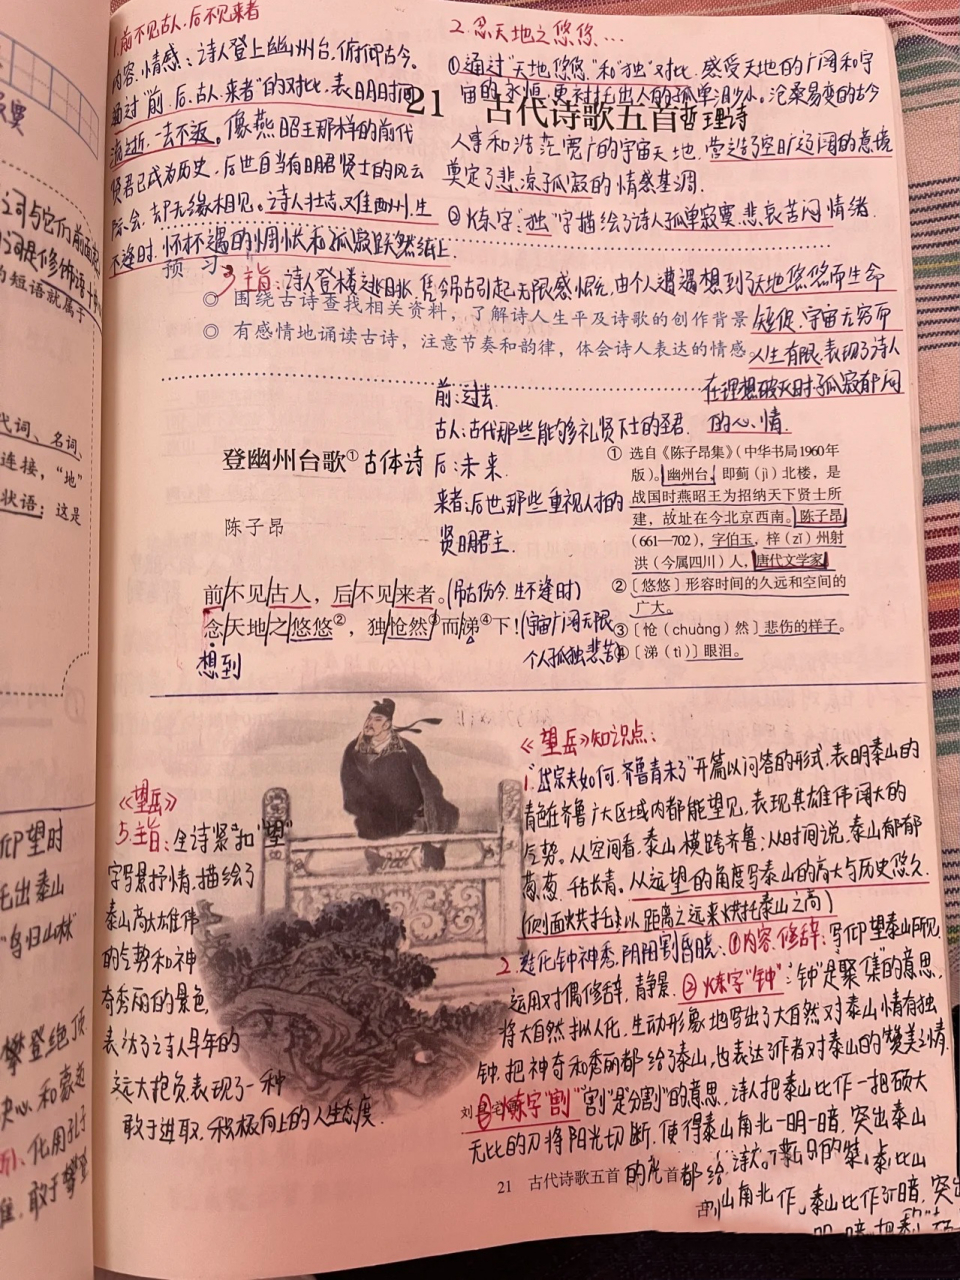 1.前不见古人.后不见来者
内容.情感：诗人登上幽州台，俯仰古今。
通过"前.后.古人.来者"的对比.表明时间
流逝.一去不返。像燕昭王那样的前代
贤君已成为历史，后世自当有明君贤士的风云
际会.却无缘相见。诗人壮志难酬州.生
不逢时.怀才不遇的惆怅和孤寂跃然纸上.
2.念天地之悠悠…
①通过"天地悠悠"和"独"对比.感受天地的广阔和宇
宙的永恒.更衬托出人的孤单渺小。沧桑易变的古今
人事和浩茫宽广的宇宙天地.营造了空旷辽阔的意境
奠定了悲凉孤寂的情感基调.
②炼字："独"字描绘了诗人孤单寂寞.悲哀苦闷情绪.
21 古代诗歌五首 哲理诗
预 习
3.主旨：诗人登楼远眺.凭今吊古引起无限感慨.由个人遭遇想到了天地悠悠而生命
短促.宇宙无穷而
人生有限.表现了诗人
在理想破灭时孤寂郁闷
的心情.
◎ 围绕古诗查找相关资料，了解诗人生平及诗歌的创作背景
◎ 有感情地诵读古诗，注意节奏和韵律，体会诗人表达的情感。
前：过去
古人：古代那些能够礼贤下士的圣君.
后：未来.
来者：后世那些重视人才的
贤明君主.
登幽州台歌① 古体诗
陈子昂
前/不见/古人，后/不见/来者。(吊古伤今.生不逢时)
念/天地/之/悠悠②，独/怆然③/而/涕④下！(宇宙广阔无限
个人孤独悲苦)
想到
① 选自《陈子昂集》（中华书局1960年
版）。幽州台，即蓟（jì）北楼，是
战国时燕昭王为招纳天下贤士所
建，故址在今北京西南。陈子昂
（661—702），字伯玉，梓（zǐ）州射
洪（今属四川）人，唐代文学家。
② 〔悠悠〕形容时间的久远和空间的
广大。
③ 〔怆（chuàng）然〕悲伤的样子。
④ 〔涕（tì）〕眼泪。
《望岳》
5.主旨：全诗紧扣"望"
字写景抒情.描绘了
泰山高大雄伟
的气势和神
奇秀丽的景色.
表达了诗人早年的
远大抱负.表现了一种
敢于进取.积极向上的人生态度.
《望岳》知识点：
1."岱宗夫如何.齐鲁青未了"开篇以问答的形式.表明泰山的
青色在齐鲁广大区域内都能望见，表现其雄伟阔大的
气势。从空间看，泰山横跨齐鲁；从时间说，泰山郁郁
葱葱.千古长青。从远望的角度写泰山的高大与历史悠久.
(侧面烘托：以距离之远来烘托泰山之高)
2.造化钟神秀.阴阳割昏晓：①内容.修辞：写仰望泰山所见
运用对偶修辞.静景.②炼字"钟"："钟"是聚集的意思.
将大自然拟人化.生动形象地写出了大自然对泰山情有独
钟.把神奇和秀丽都给了泰山，也表达了作者对泰山的赞美之情.
③炼字"割" "割"是"分割"的意思.诗人把泰山比作一把硕大
无比的刀将阳光切断.使得泰山角北一明一暗.突出泰山
21 古代诗歌五首
词与它们前面
词是修饰语
的短语就属于
代词、名词、
连接，"地"
状语；这是
仰望时
托出泰山
"鸟归山林"
攀登绝顶
决心.和豪迈
化用孔子
敢于攀登